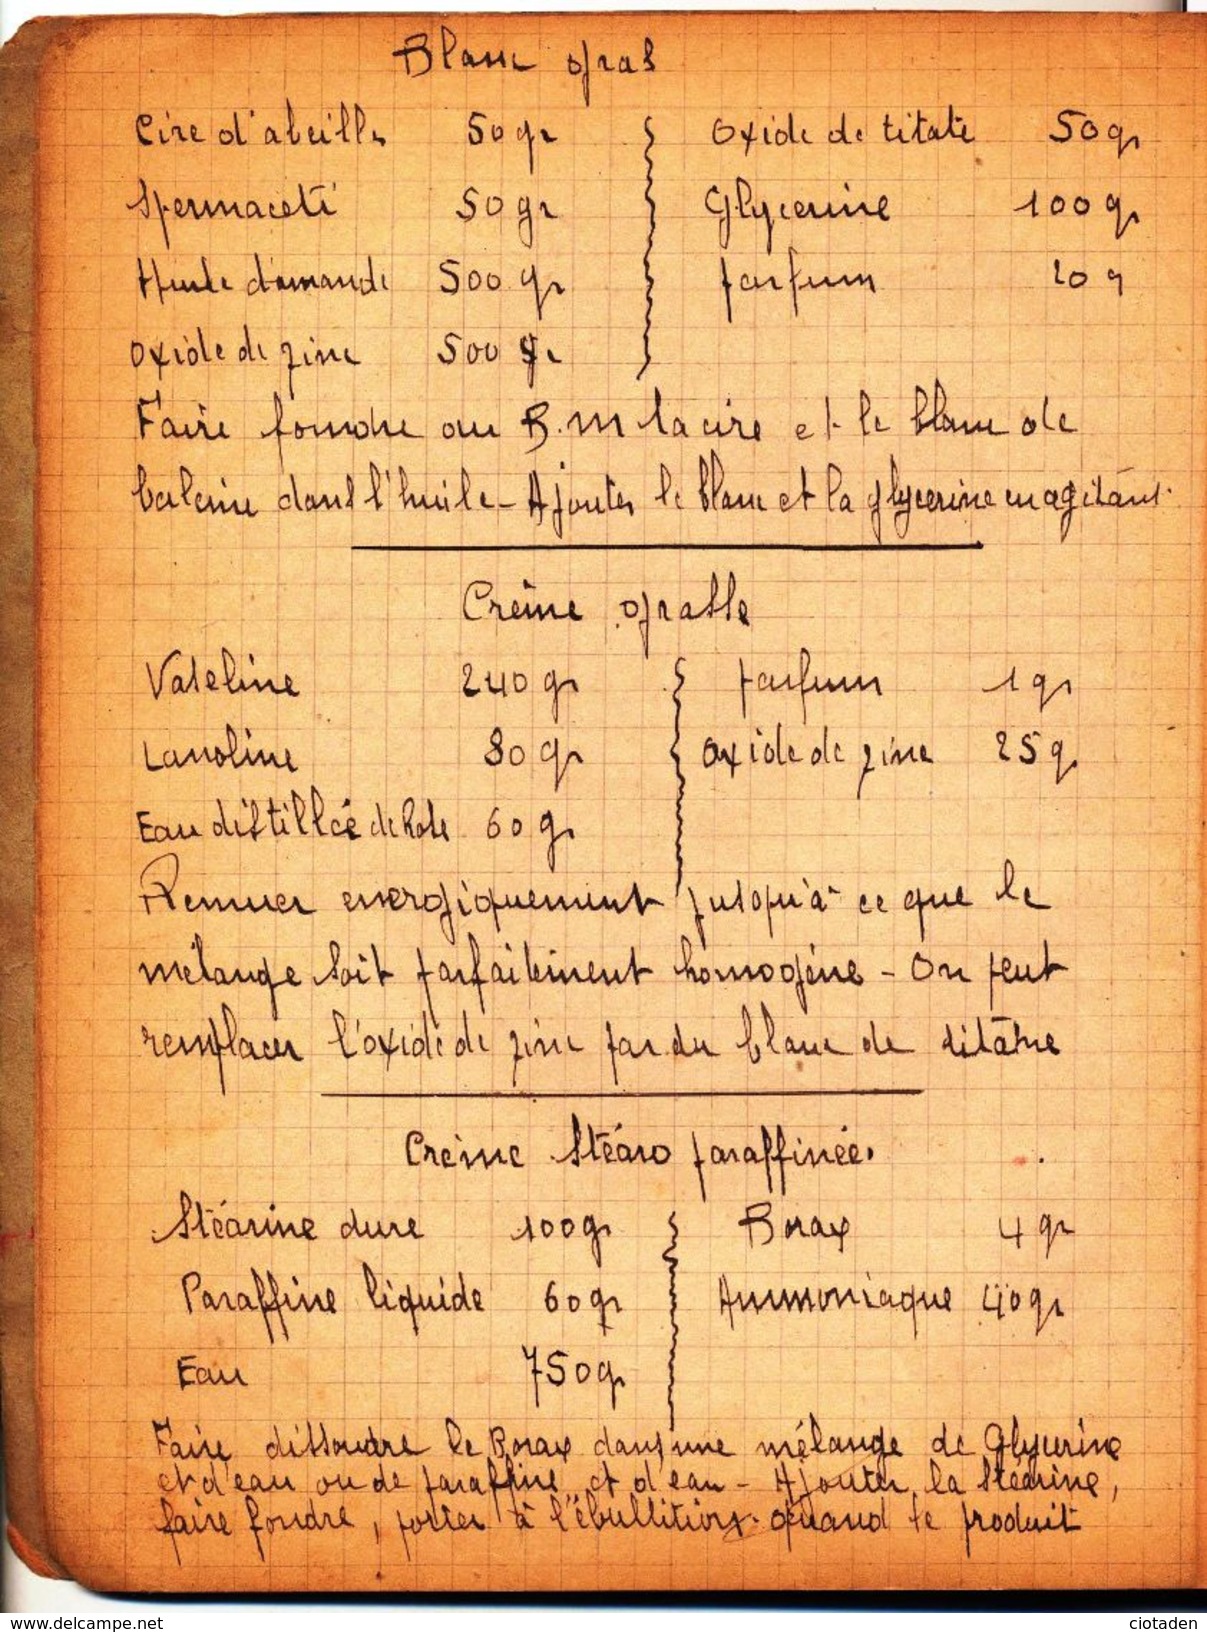 Blanc gras
Cire d'abeille 50 gr Oxide de titate 50 gr
Spermaceti 50 gr Glycerine 100 gr
Huile d'amande 500 gr parfum 20 g
Oxide de zinc 500 gr
Faire fondre au B.m la cire et le blanc de
baleine dans l'huile - Ajouter le blanc et la glycerine en agitant.
Crème grasse
Vaseline 240 gr parfum 1 gr
Lanoline 80 gr Oxide de zinc 25 gr
Eau distillée de Rose 60 gr
Remuer energiquement jusqu'à ce que le
mélange soit parfaitement homogène - On peut
remplacer l'oxide de zinc par du blanc de titane
Crème Stéaro paraffinée.
Stéarine dure 100 gr Borax 4 gr
Paraffine liquide 60 gr Ammoniaque 40 gr
Eau 750 gr
Faire dissoudre le Borax dans une mélange de Glycerine
et d'eau ou de paraffine et d'eau - Ajouter la Stéarine,
faire fondre, porter à l'ébullition. quand le produit
https://www.delcampe.net
ciotaden